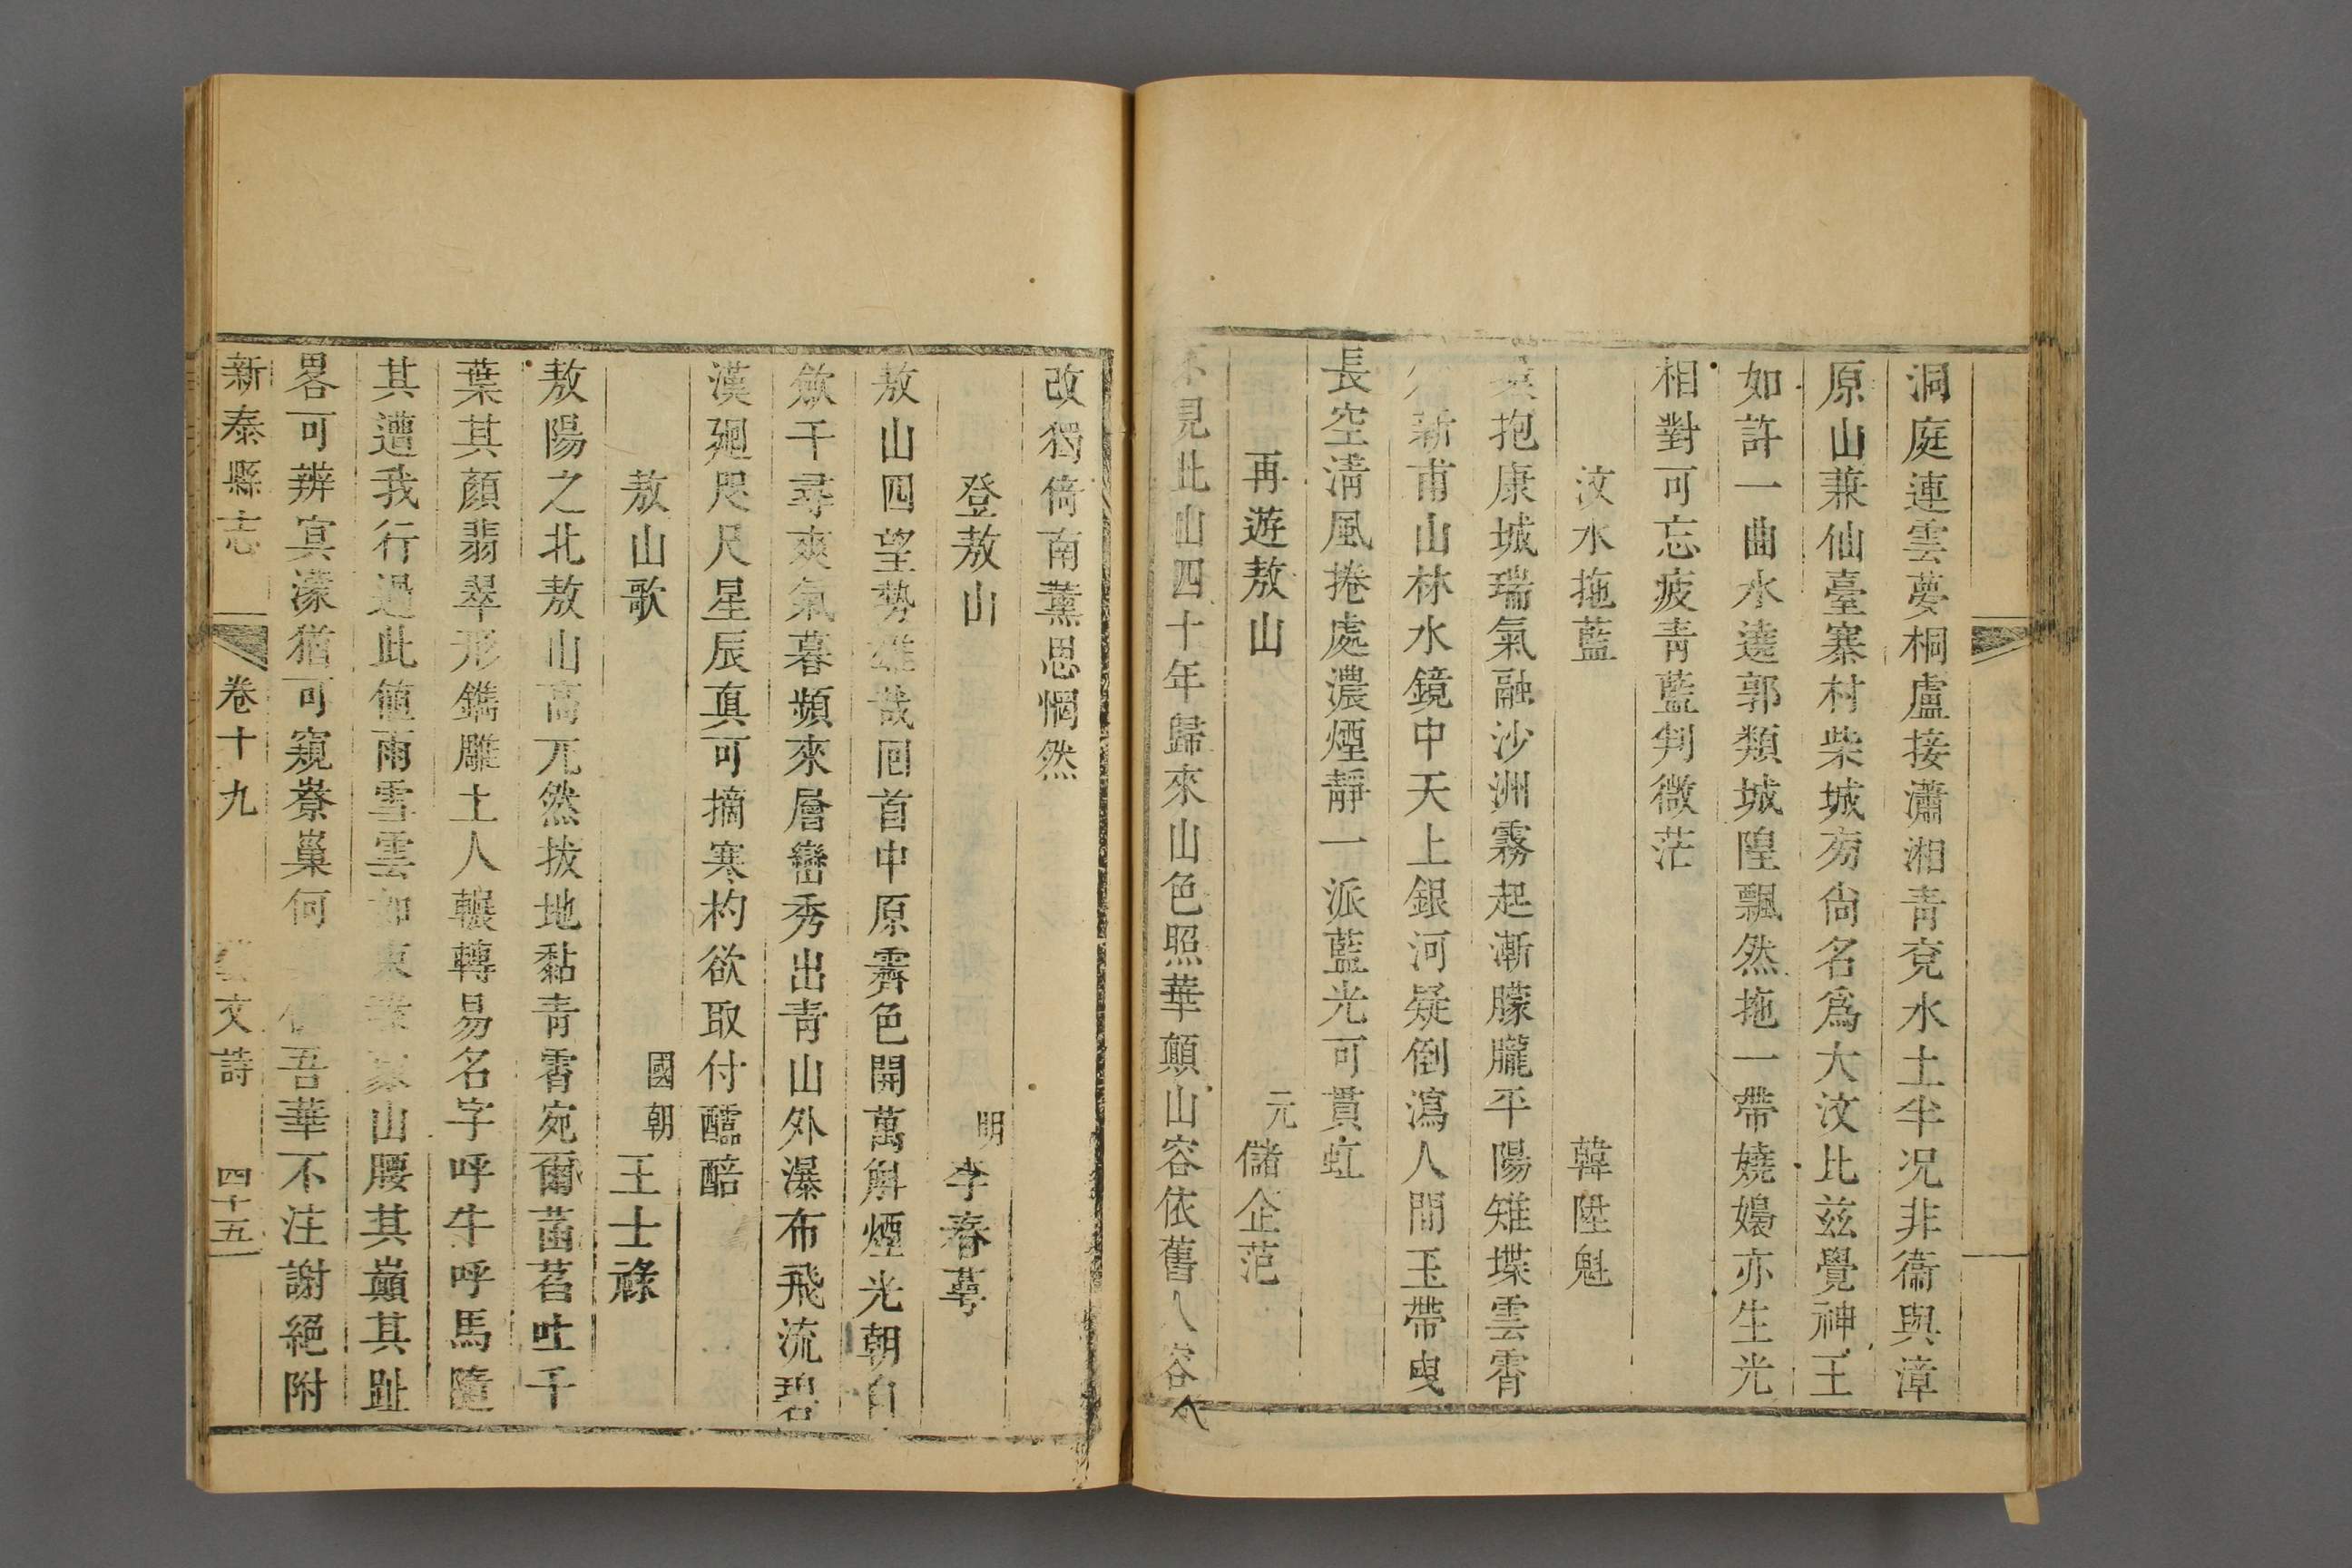 洞庭連雲夢桐盧接瀟湘青兗水土半况非衞與漳
原山兼仙臺寨村柴城旁尙名爲大汶比兹覺神王
如許一曲水遶郭類城隍飄然拖一帶嬈嬝亦生光
相對可忘疲青藍判微茫
汶水拖藍 韓陞魁
抱康城瑞氣融沙洲霧起漸朦朧平陽雉堞雲霄
新甫山林水鏡中天上銀河疑倒瀉人間玉帶曳
長空淸風捲處濃煙靜一派藍光可貫虹
再遊敖山 元 儲企范
不見此山四十年歸來山色照華顛山容依舊人容
改獨倚南薰思惘然
登敖山 明 李春蕚
敖山四望勢雄哉囘首中原霽色開萬斛煙光朝自
歛千尋爽氣暮頻來層巒秀出青山外瀑布飛流碧
漢廻咫尺星辰真可摘寒杓欲取付醽醅
敖山歌 國朝 王士祿
敖陽之北敖山高兀然拔地黏青霄宛爾菡萏吐千
葉其顏翡翠形鐫雕土人輾轉易名字呼牛呼馬隨
其遭我行過此値雨雪雲如東山腰其巔其趾
畧可辨㝠濛猶可窺嶚巢何吾華不注謝絕附
新泰縣志 卷十九 藝文詩 四十五